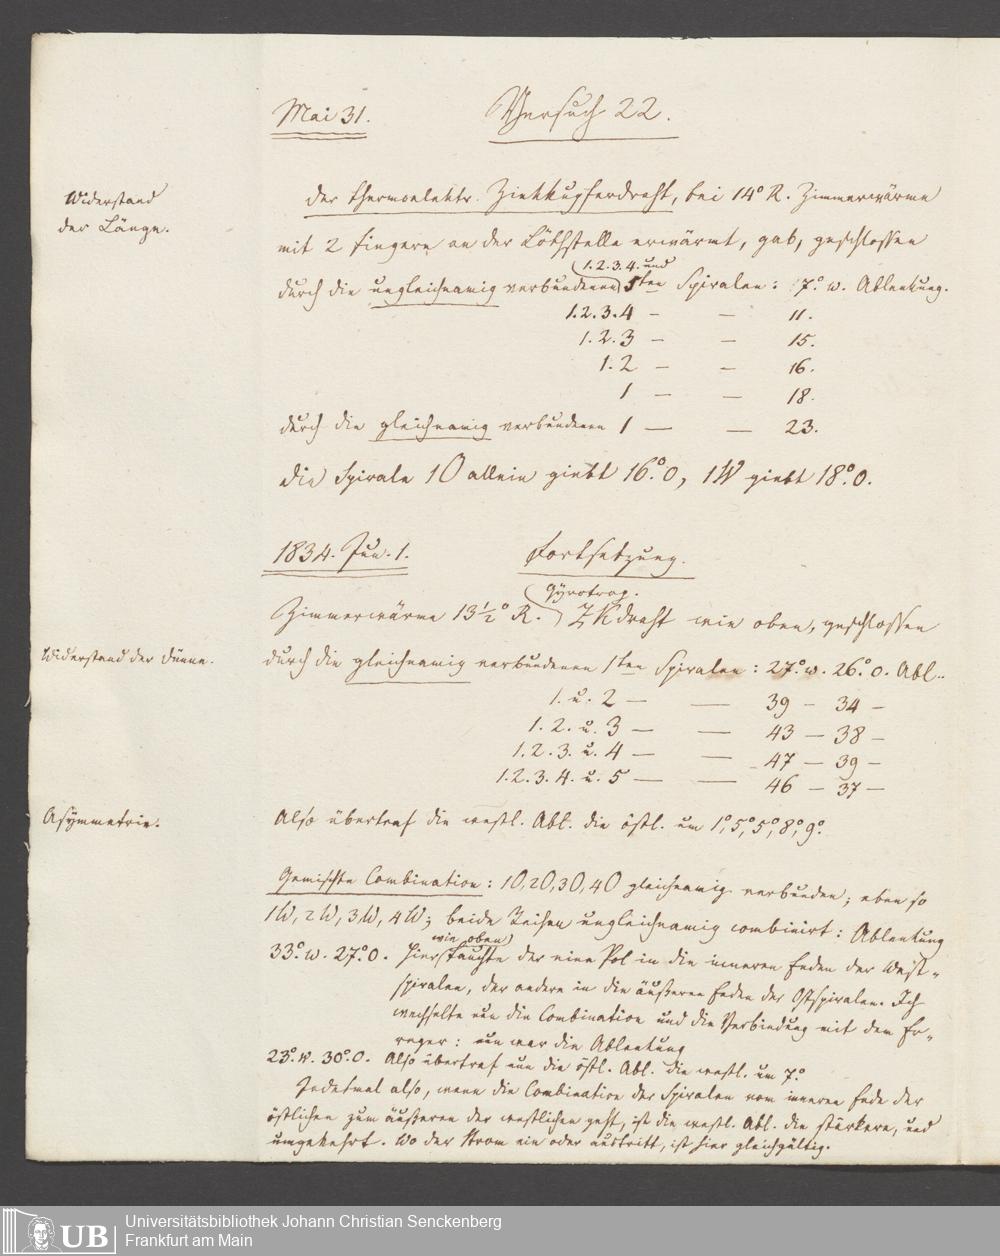 Mai 31. Versuch 22.
Widerstand
der Länge.
Der thermoelektr. Zinkkupferdraht, bei 14° R. Zimmerwärme
mit 2 Fingern an der Löthstelle erwärmt, gab, geschlossen
1.2.3.4. und
durch die ungleichnamig verbundenen 5ten Spiralen: 7° w. Ablenkung.
1.2.3.4 — — 11.
1.2.3 — — 15.
1.2 — — 16.
1 — — 18.
durch die gleichnamig verbundenen 1 — — 23.
Die Spirale 1O allein giebt 16°.0, 1W giebt 18°.0.
1834. Jun. 1. Fortsetzung.
Gyrotrop.
Zimmerwärme 13½° R. ZKdraht wie oben, geschlossen
Widerstand der Dünne.
durch die gleichnamig verbundenen 1ten Spiralen: 27° w. 26° o. Abl..
1. u. 2 — — 39 — 34 —
1. 2. u. 3 — — 43 — 38 —
1. 2. 3. u. 4 — — 47 — 39 —
1. 2. 3. 4. u. 5 — — 46 — 37 —
Asymmetrie.
Also übertraf die westl. Abl. die östl. um 1°, 5°, 5°, 8°, 9°.
Gemischte Combination: 1O, 2O, 3O, 4O gleichnamig verbunden; eben so
1W, 2W, 3W, 4W; beide Reihen ungleichnamig combinirt: Ablenkung
wie oben
33° w. 27° o. Hier tauchte der eine Pol in die inneren Enden der West-
spiralen, der andere in die äußeren Enden der Ostspiralen. Ich
wechselte nun die Combination und die Verbindung mit dem Er-
reger: nun war die Ablenkung
23° w. 30° o. Also übertraf nun die östl. Abl. die westl. um 7°.
Jedesmal also, wenn die Combination der Spiralen vom inneren Ende der
östlichen zum äußeren der westlichen geht, ist die westl. Abl. die stärkere, und
umgekehrt. Wo der Strom ein oder austritt, ist hier gleichgültig.
UB
Universitätsbibliothek Johann Christian Senckenberg
Frankfurt am Main